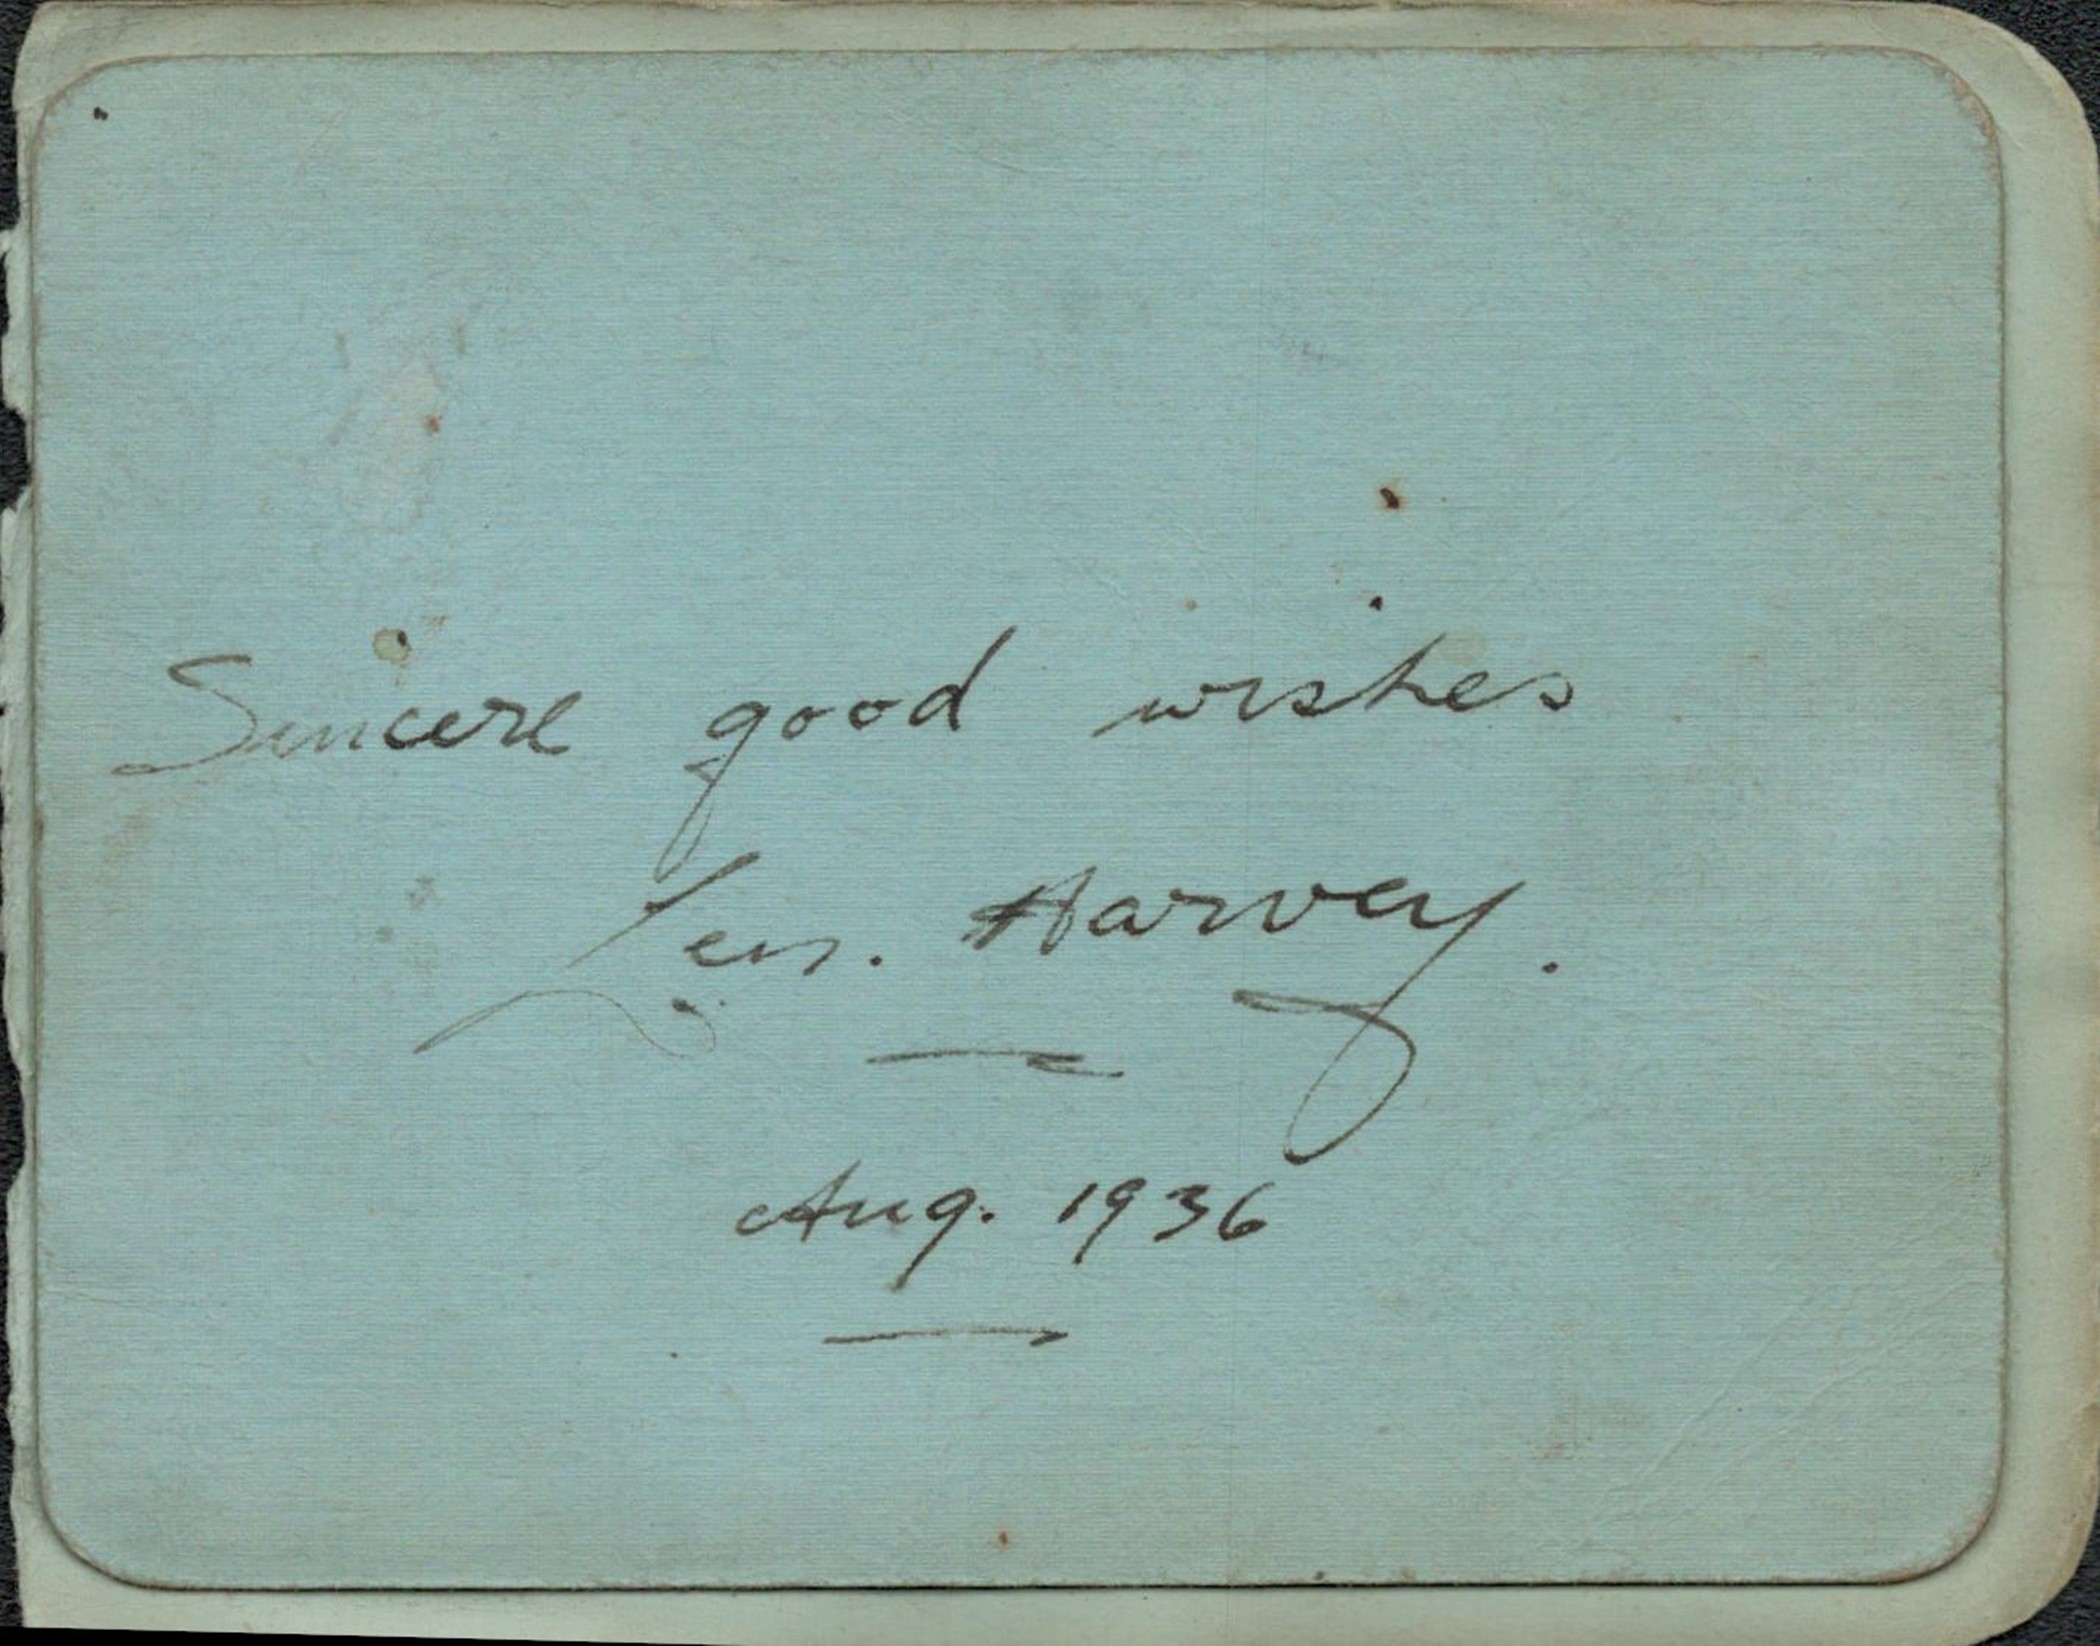 Sincere good wishes
Len. Harvey.
Aug. 1936